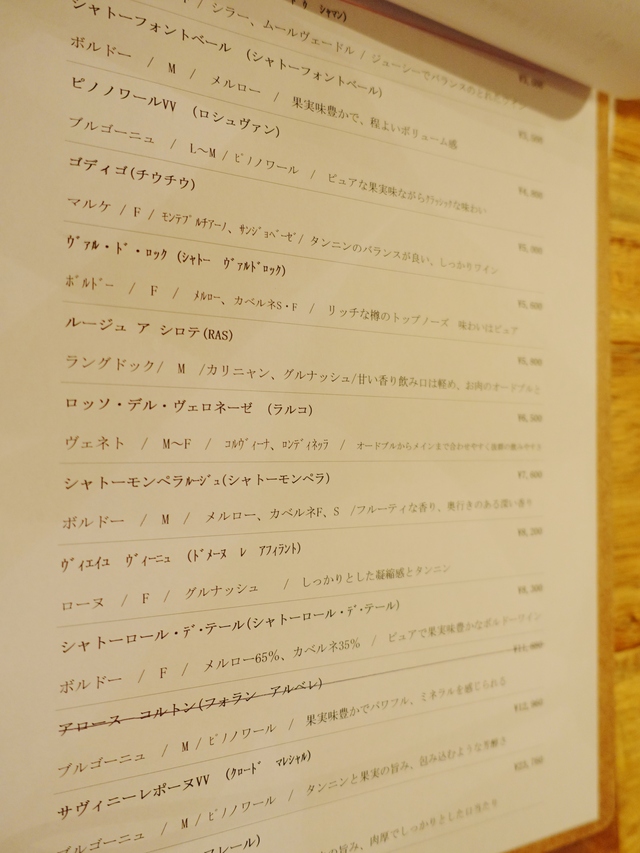 シャマン)
/ シラー、ムールヴェードル / ジューシーでバランスのとれた
シャトーフォントベール (シャトーフォントベール)
ボルドー / M / メルロー / 果実味豊かで、程よいボリューム感
ピノノワールVV (ロシュヴァン)
ブルゴーニュ / L～M / ピノノワール / ピュアな果実味ながらｸﾗｼｯｸな味わい
ゴディゴ(チウチウ)
マルケ / F / ﾓﾝﾃﾌﾟﾙﾁｱｰﾉ、ｻﾝｼﾞｮﾍﾞｰｾﾞ / タンニンのバランスが良い、しっかりワイン
ｳﾞｧﾙ・ﾄﾞ・ﾛｯｸ (ｼｬﾄｰ ｳﾞｧﾙﾄﾞﾛｯｸ)
ﾎﾞﾙﾄﾞｰ / F / ﾒﾙﾛｰ、カベルネS・F / リッチな樽のトップノーズ 味わいはピュア
ルージュ ア シロテ(RAS)
¥5,800
ラングドック/ M /カリニャン、グルナッシュ/甘い香り飲み口は軽め、お肉のオードブルと
ロッソ・デル・ヴェロネーゼ (ラルコ)
¥6,500
ヴェネト / M～F / ｺﾙｳﾞｨｰﾅ、ﾛﾝﾃﾞｨﾈｯﾗ / オードブルからメインまで合わせやすく
シャトーモンペラﾙｰｼﾞｭ(シャトーモンペラ)
¥7,600
ボルドー / M / メルロー、カベルネF、S /フルーティな香り、奥行きのある深い香り
ｳﾞｨｴｲﾕ ｳﾞｨｰﾆｭ (ﾄﾞﾒｰﾇ ﾚ ｱﾌｨﾗﾝﾄ)
¥8,200
ローヌ / F / グルナッシュ / しっかりとした凝縮感とタンニン
シャトーロール・デ・テール(シャトーロール・デ・テール)
¥8,300
ボルドー / F / メルロー65%、カベルネ35% / ピュアで果実味豊かなボルドーワイン
アロース コルトン(フォラン アルベレ)
ブルゴーニュ / M / ピノノワール / 果実味豊かでパワフル、ミネラルを感じられる
サヴィニーレボーヌVV (ｸﾛｰﾄﾞ ﾏﾚｼｬﾙ)
ブルゴーニュ / M / ピノノワール / タンニンと果実の旨み、包み込むような芳醇さ
の旨み、肉厚でしっかりとした口当たり